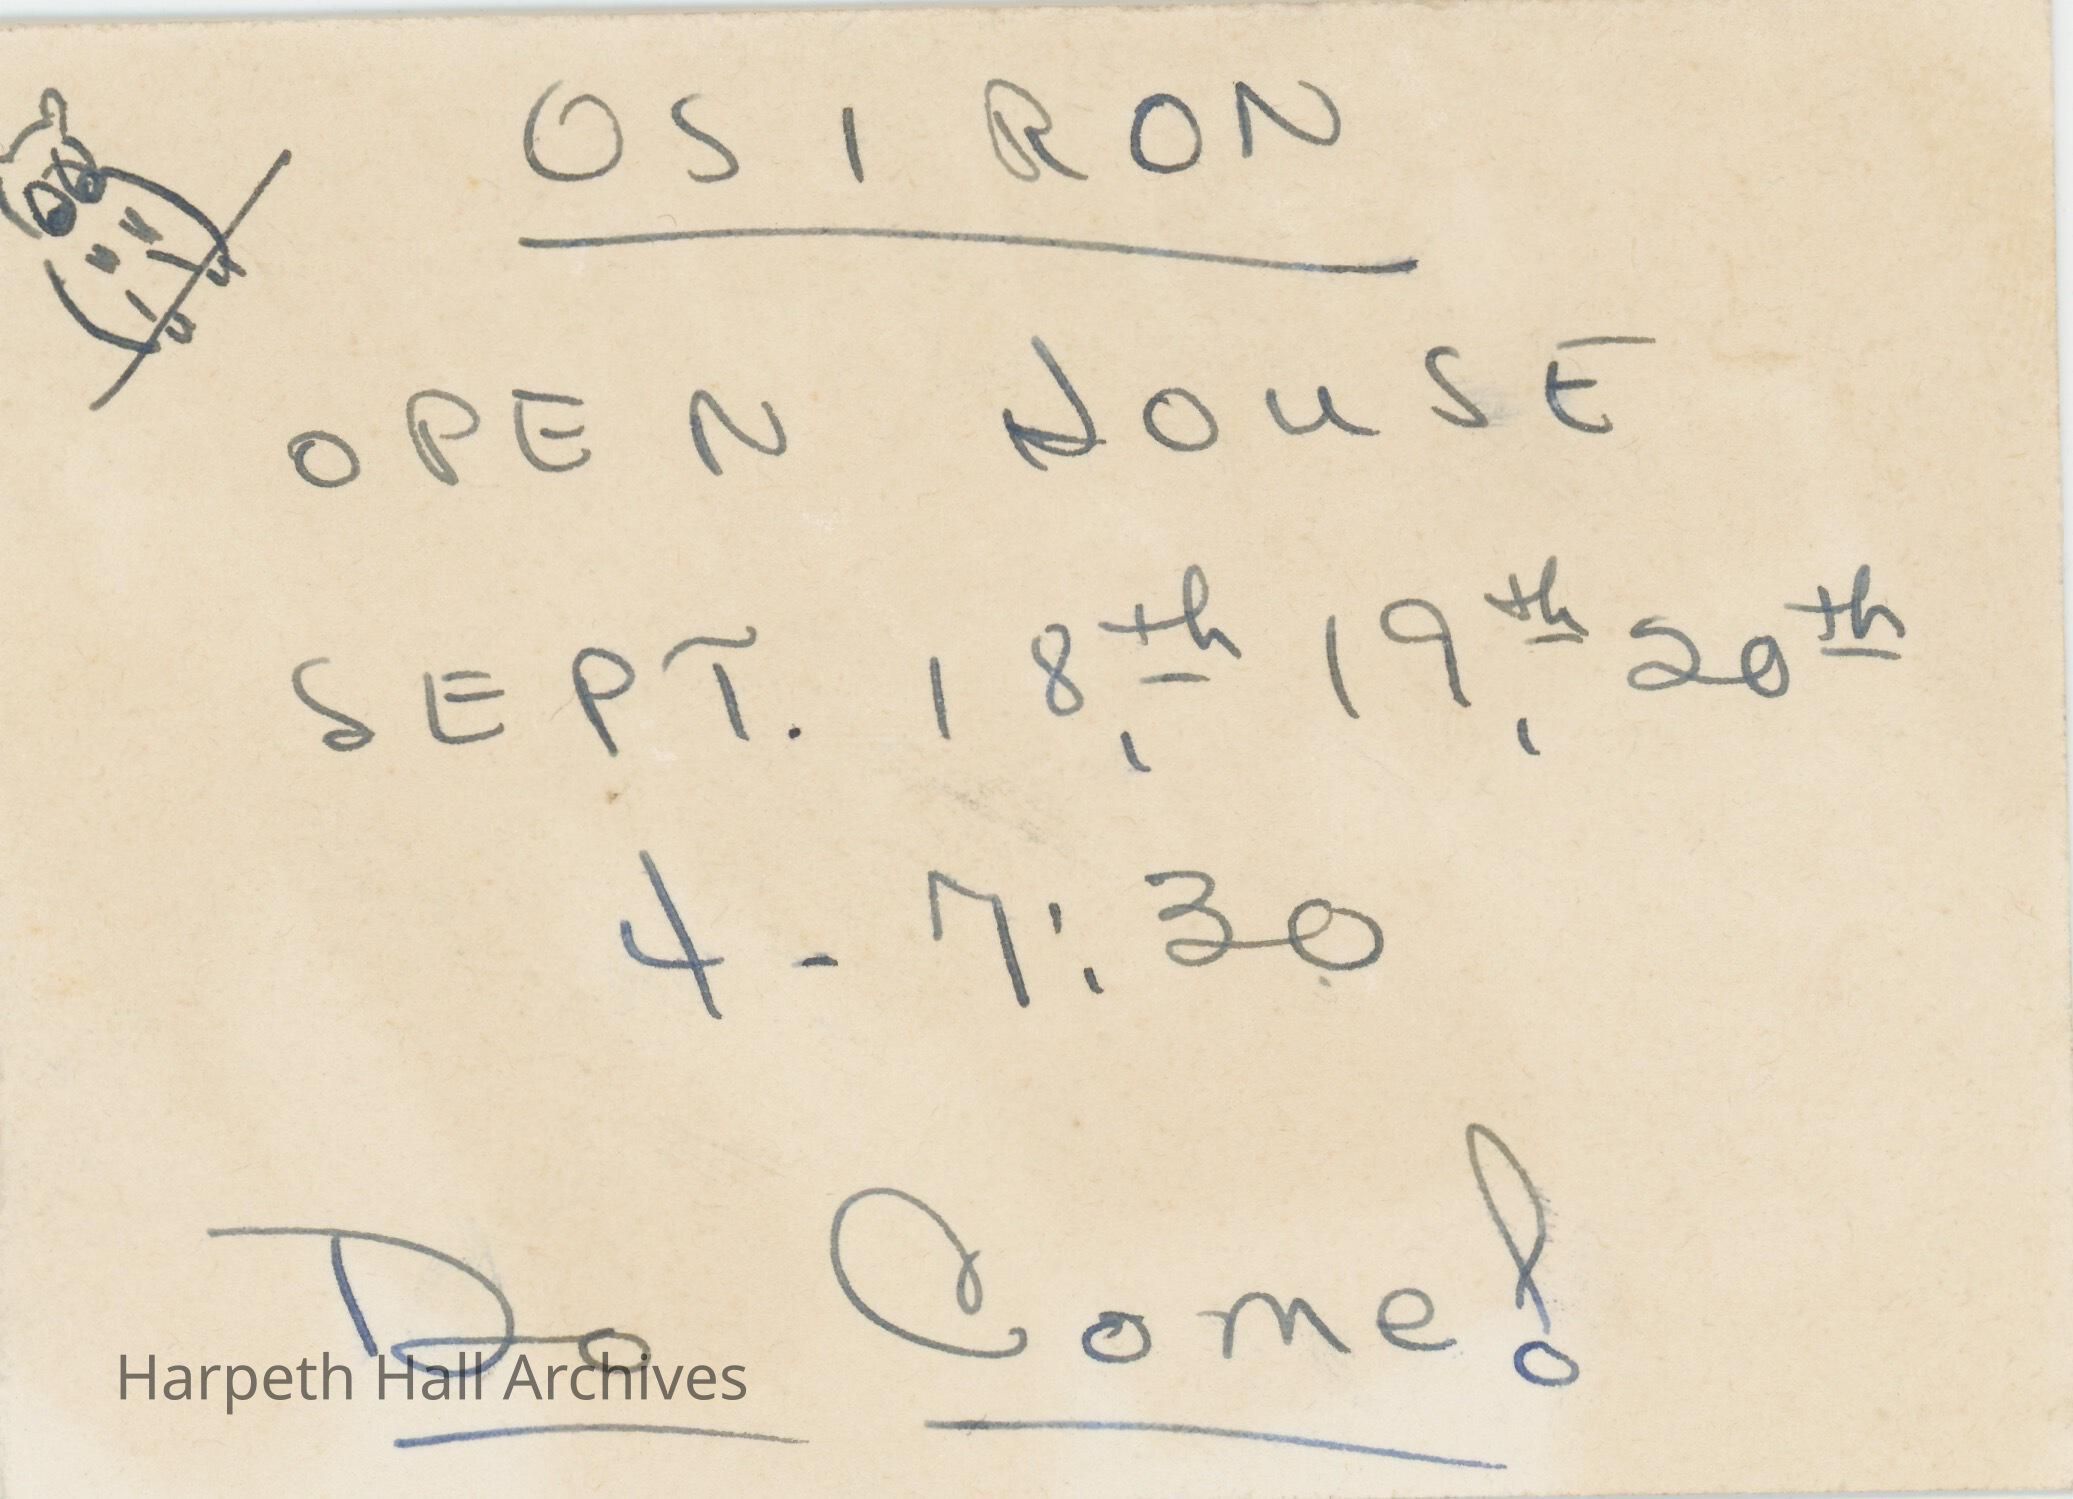 OSIRON
OPEN HOUSE
SEPT. 18th, 19th, 20th
4 - 7:30
Do Come!
Harpeth Hall Archives